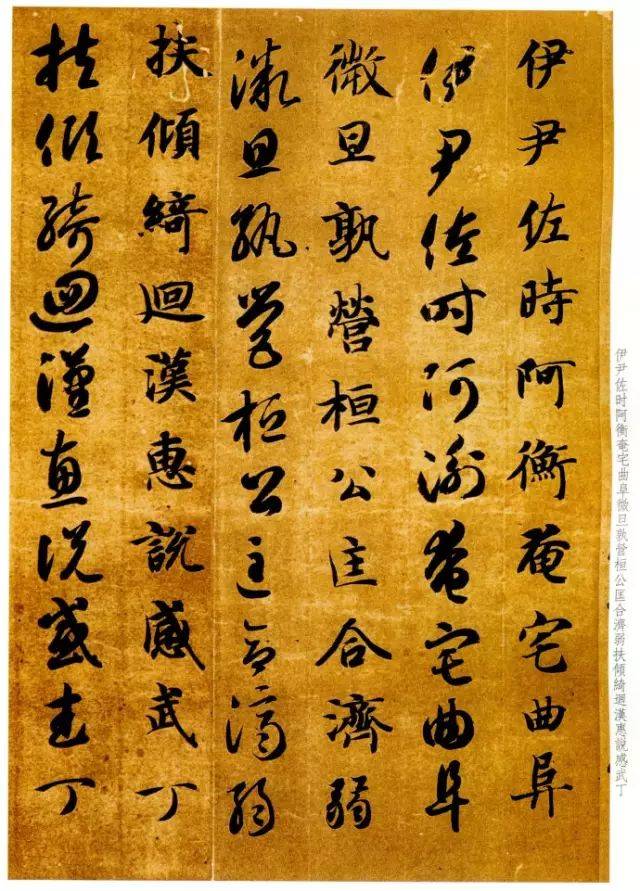 伊尹佐时阿衡奄宅曲阜微旦孰營桓公匡合濟弱扶傾綺迴漢惠說感武丁
伊尹佐時阿衡奄宅曲阜
伊尹佐時阿衡奄宅曲阜
微旦孰營桓公匡合濟弱
微旦孰營桓公匡合濟弱
扶傾綺迴漢惠說感武丁
扶傾綺迴漢惠說感武丁